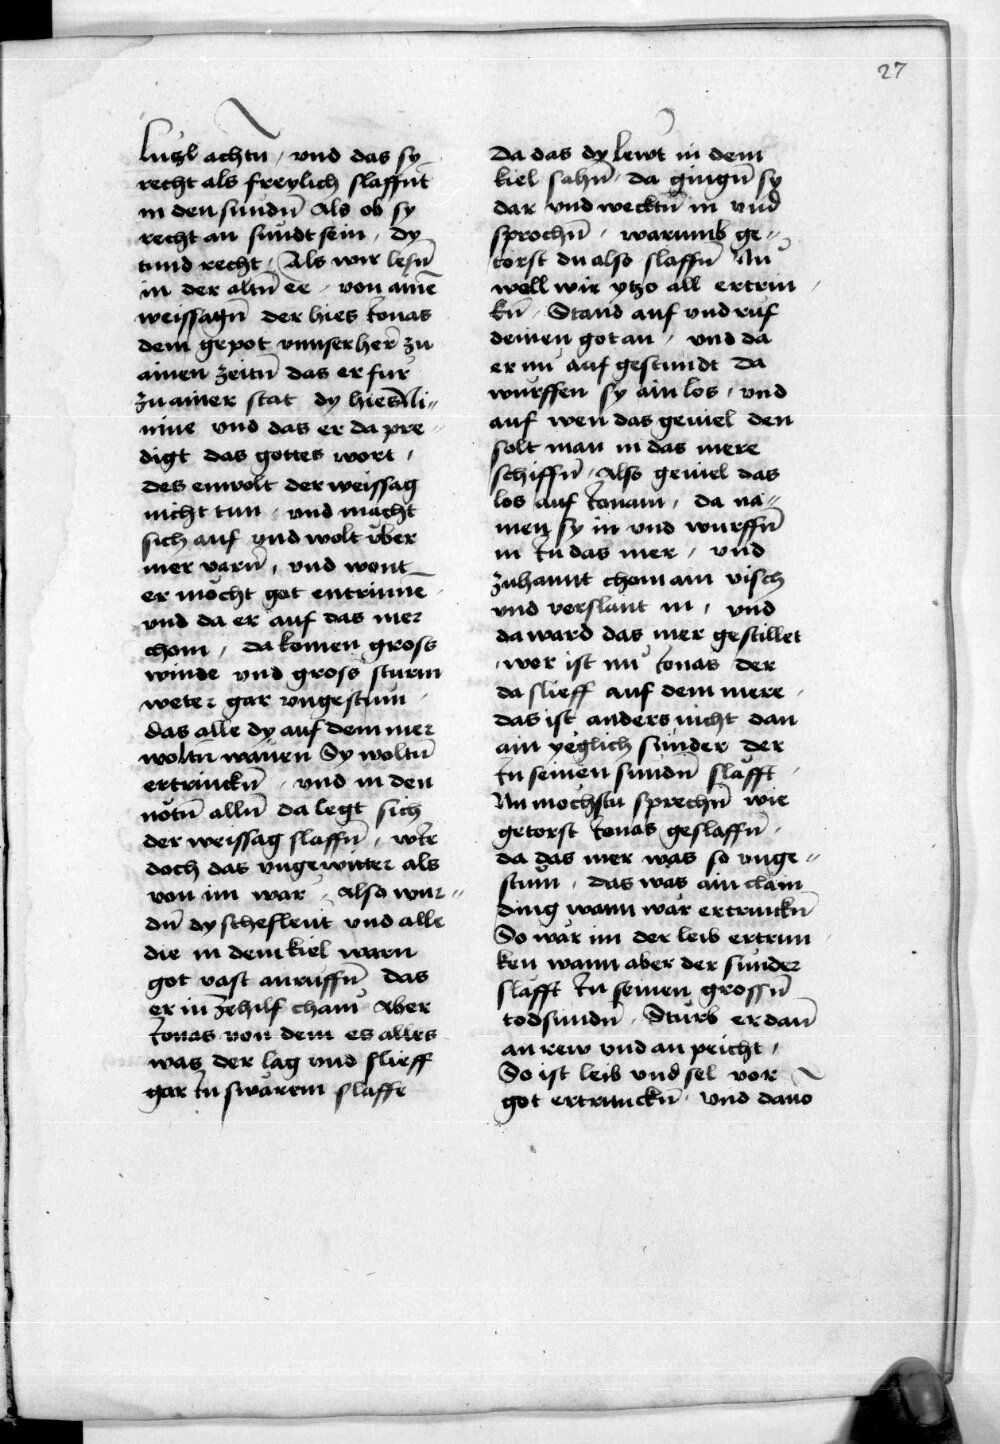 27
lutzl achtn / vnd das sy
recht als freylich slaffn̄t
in den sundn̄ Als ob sy
recht an sundt sein / dy
tund recht / Als wir lesn̄
in der altn̄ ee / von ainē
weissagn̄ der hies Jonas
dem gepot vnnser her̄ zu
ainen zeitn̄ das er fur
zu ainer stat dy hies Ni„
niue vnd das er da pre„
digt das gottes wort /
des enwolt der weissag
nicht tun / vnd macht
sich auf vnd wolt vber
mer varn̄ / vnd wont
er mocht got entrinnē
vnd da er auf das mer
chom / da komen gross
winde vnd gross sturm
weter gar vngestum /
das alle dy auf dem mer
woltn̄ wanen Sy woltn̄
ertrinckn̄ / vnd in den
notn̄ alln̄ da legt sich
der weissag slaffn̄ / wie
doch das vngewitter als
von im war / Also wur„
dn̄ dy schefleut vnd alle
die in dem kiel warn
got vast anruffn̄ das
er in zehilf cham Aber
Jonas von dem es alles
was der lag vnd slieff
gar in swarem slaffe
da das dy lewt in dem
kiel sahn̄ / da gingn̄ sy
dar vnd wecktn̄ in vnd
sprochn̄ / warumb ge„
torst du also slaffn̄ Nu
well wir ytzo all ertrin /
kn̄ / Stand auf vnd ruf
deinen got an / vnd da
er nu auf gestundt da
wurffen sy ain los / vnd
auf wen das geuiel den
solt man in das mere
schiffn̄ / Also geuiel das
los auf Jonam / da na„
men sy in vnd wurffn̄
in in das mer / vnd
zuhannt chom ain visch
vnd verslant in / vnd
da ward das mer gestillet
/ wer ist nu Jonas der
da slieff auf dem mere /
das ist anders nicht dan
ain yeglich sunder der
in seinen sundn̄ slafft /
Nu mochstu sprechn̄ wie
getorst Jonas geslaffn̄ /
da das mer was so vnge„
stum / das was ain clain
ding wann war ertrunckn̄
So war im der leib ertrun /
ken wann aber der sunder
slafft in seinen grossn̄
todsundn̄ / Sturb er dan̄
an rew vnd an peicht /
So ist leib vnd sel vor
got ertrunckn̄ / vnd dauo